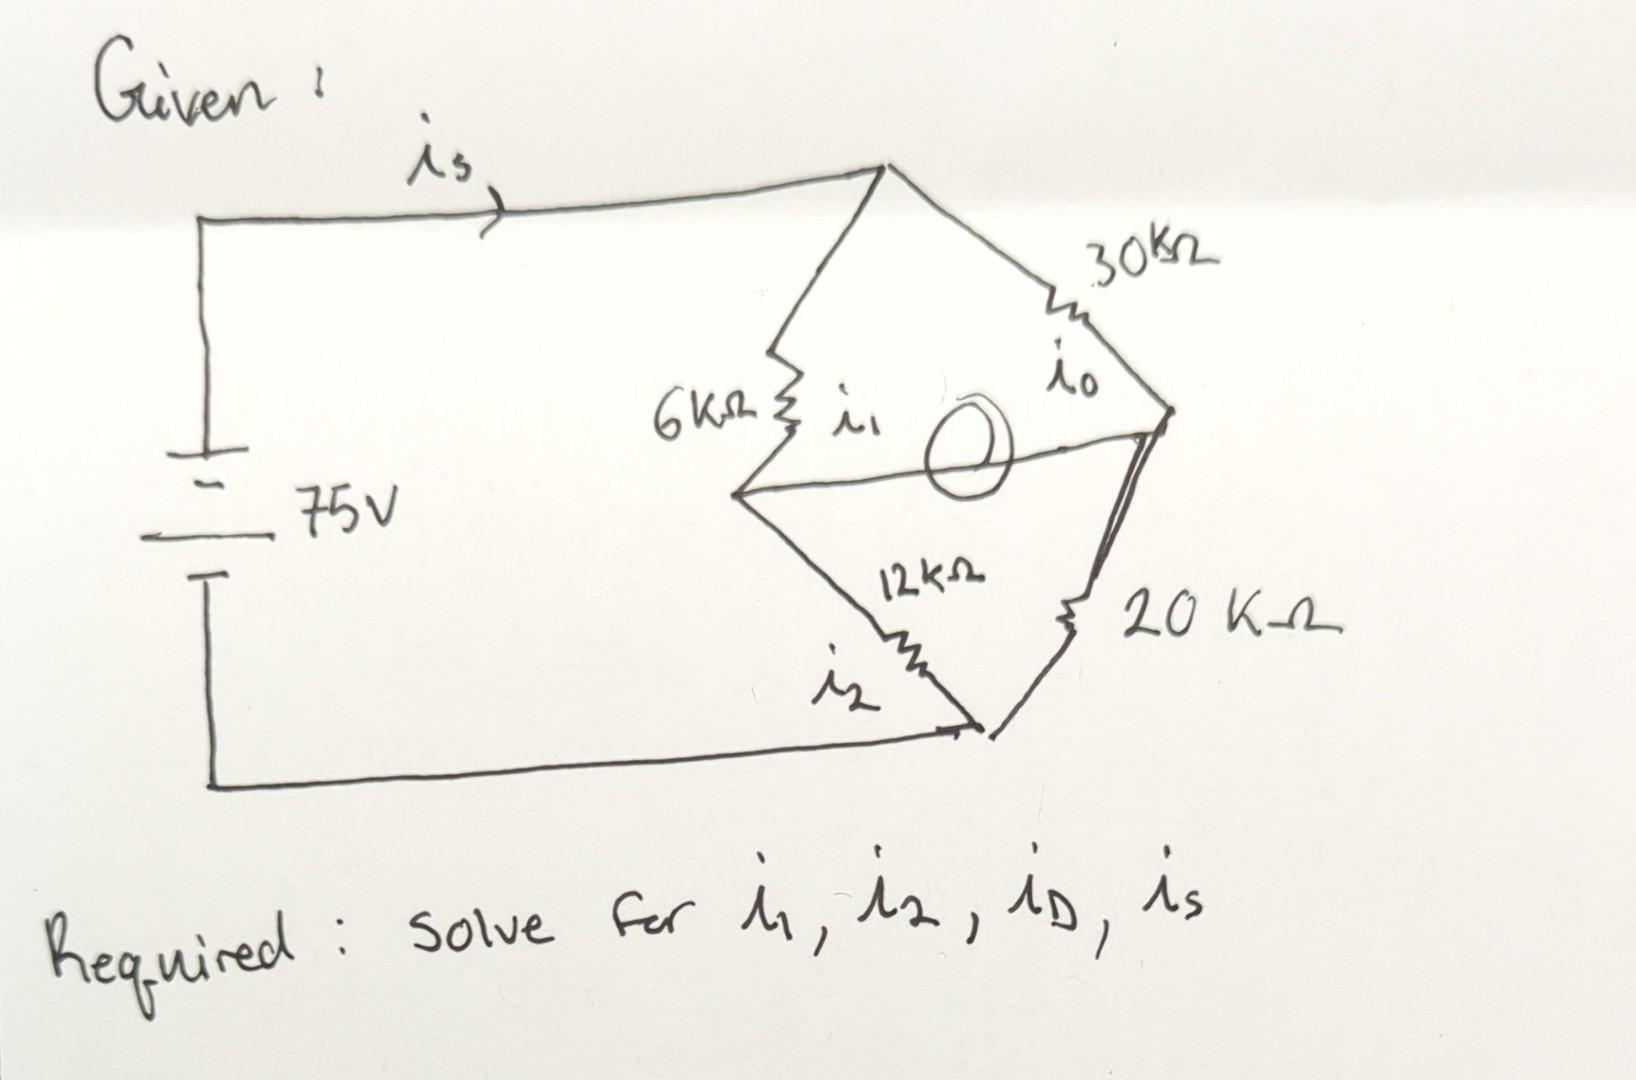 Given :
is
30KΩ
io
6KΩ
i1
75V
12KΩ
20 KΩ
i2
Required : Solve for i1, i2, iD, is